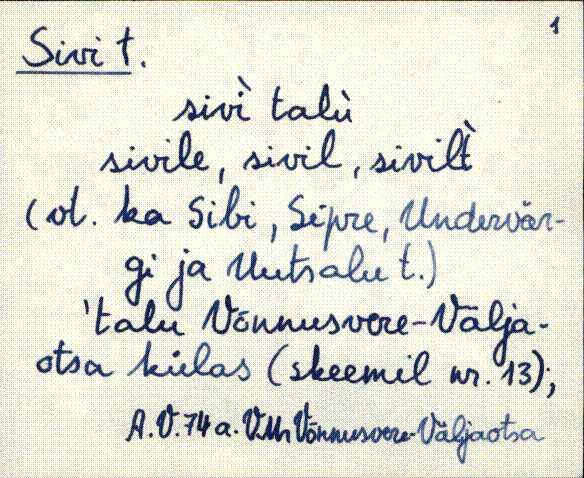 1
Sivi t.
sivì talù
sivile, sivil, sivilt̀
(vt. ka Sibi, Sipre, Undervär-
gi ja Uutsalu t.)
'talu Võnnusvere-Välja-
otsa külas (skeemil nr. 13);
A.V. 74 a. V.Mr Võnnusvere-Väljaotsa